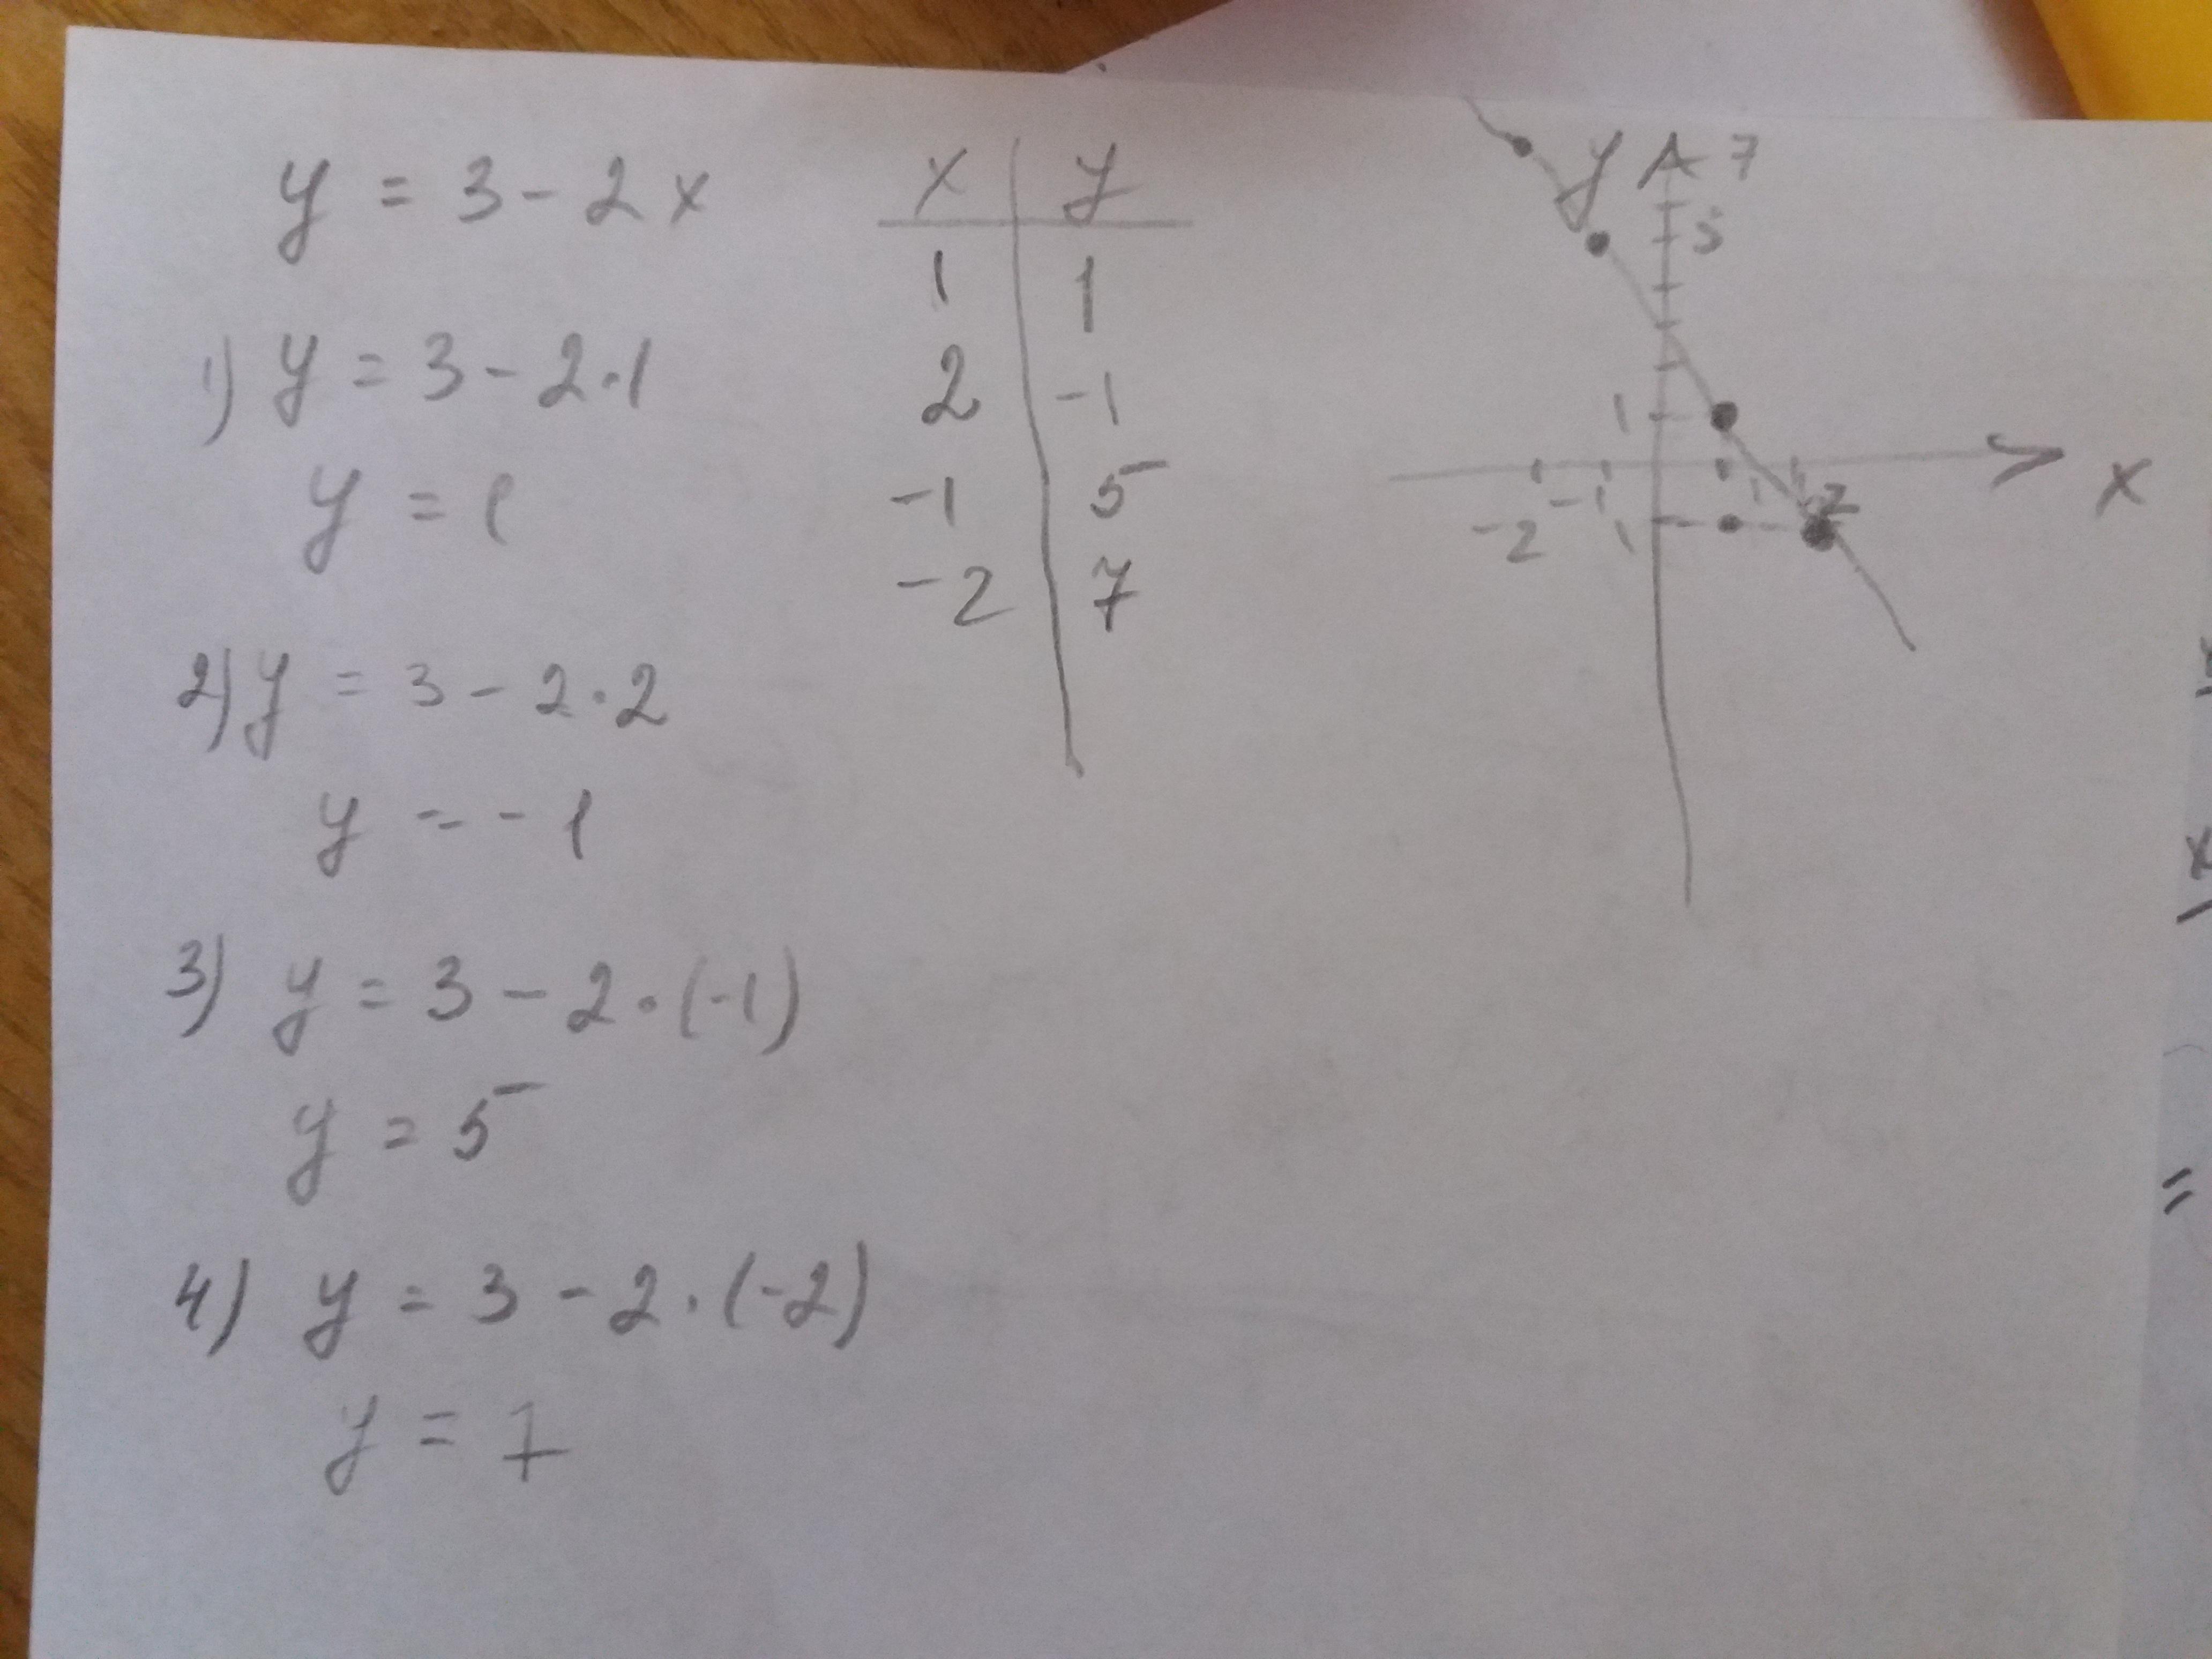 y = 3 - 2x
1) y = 3 - 2·1
y = 1
2) y = 3 - 2·2
y = -1
3) y = 3 - 2·(-1)
y = 5
4) y = 3 - 2·(-2)
y = 7
x | y
1 | 1
2 | -1
-1 | 5
-2 | 7
y 7
5
1
-2 -1 1 2 x
1
x
x
=